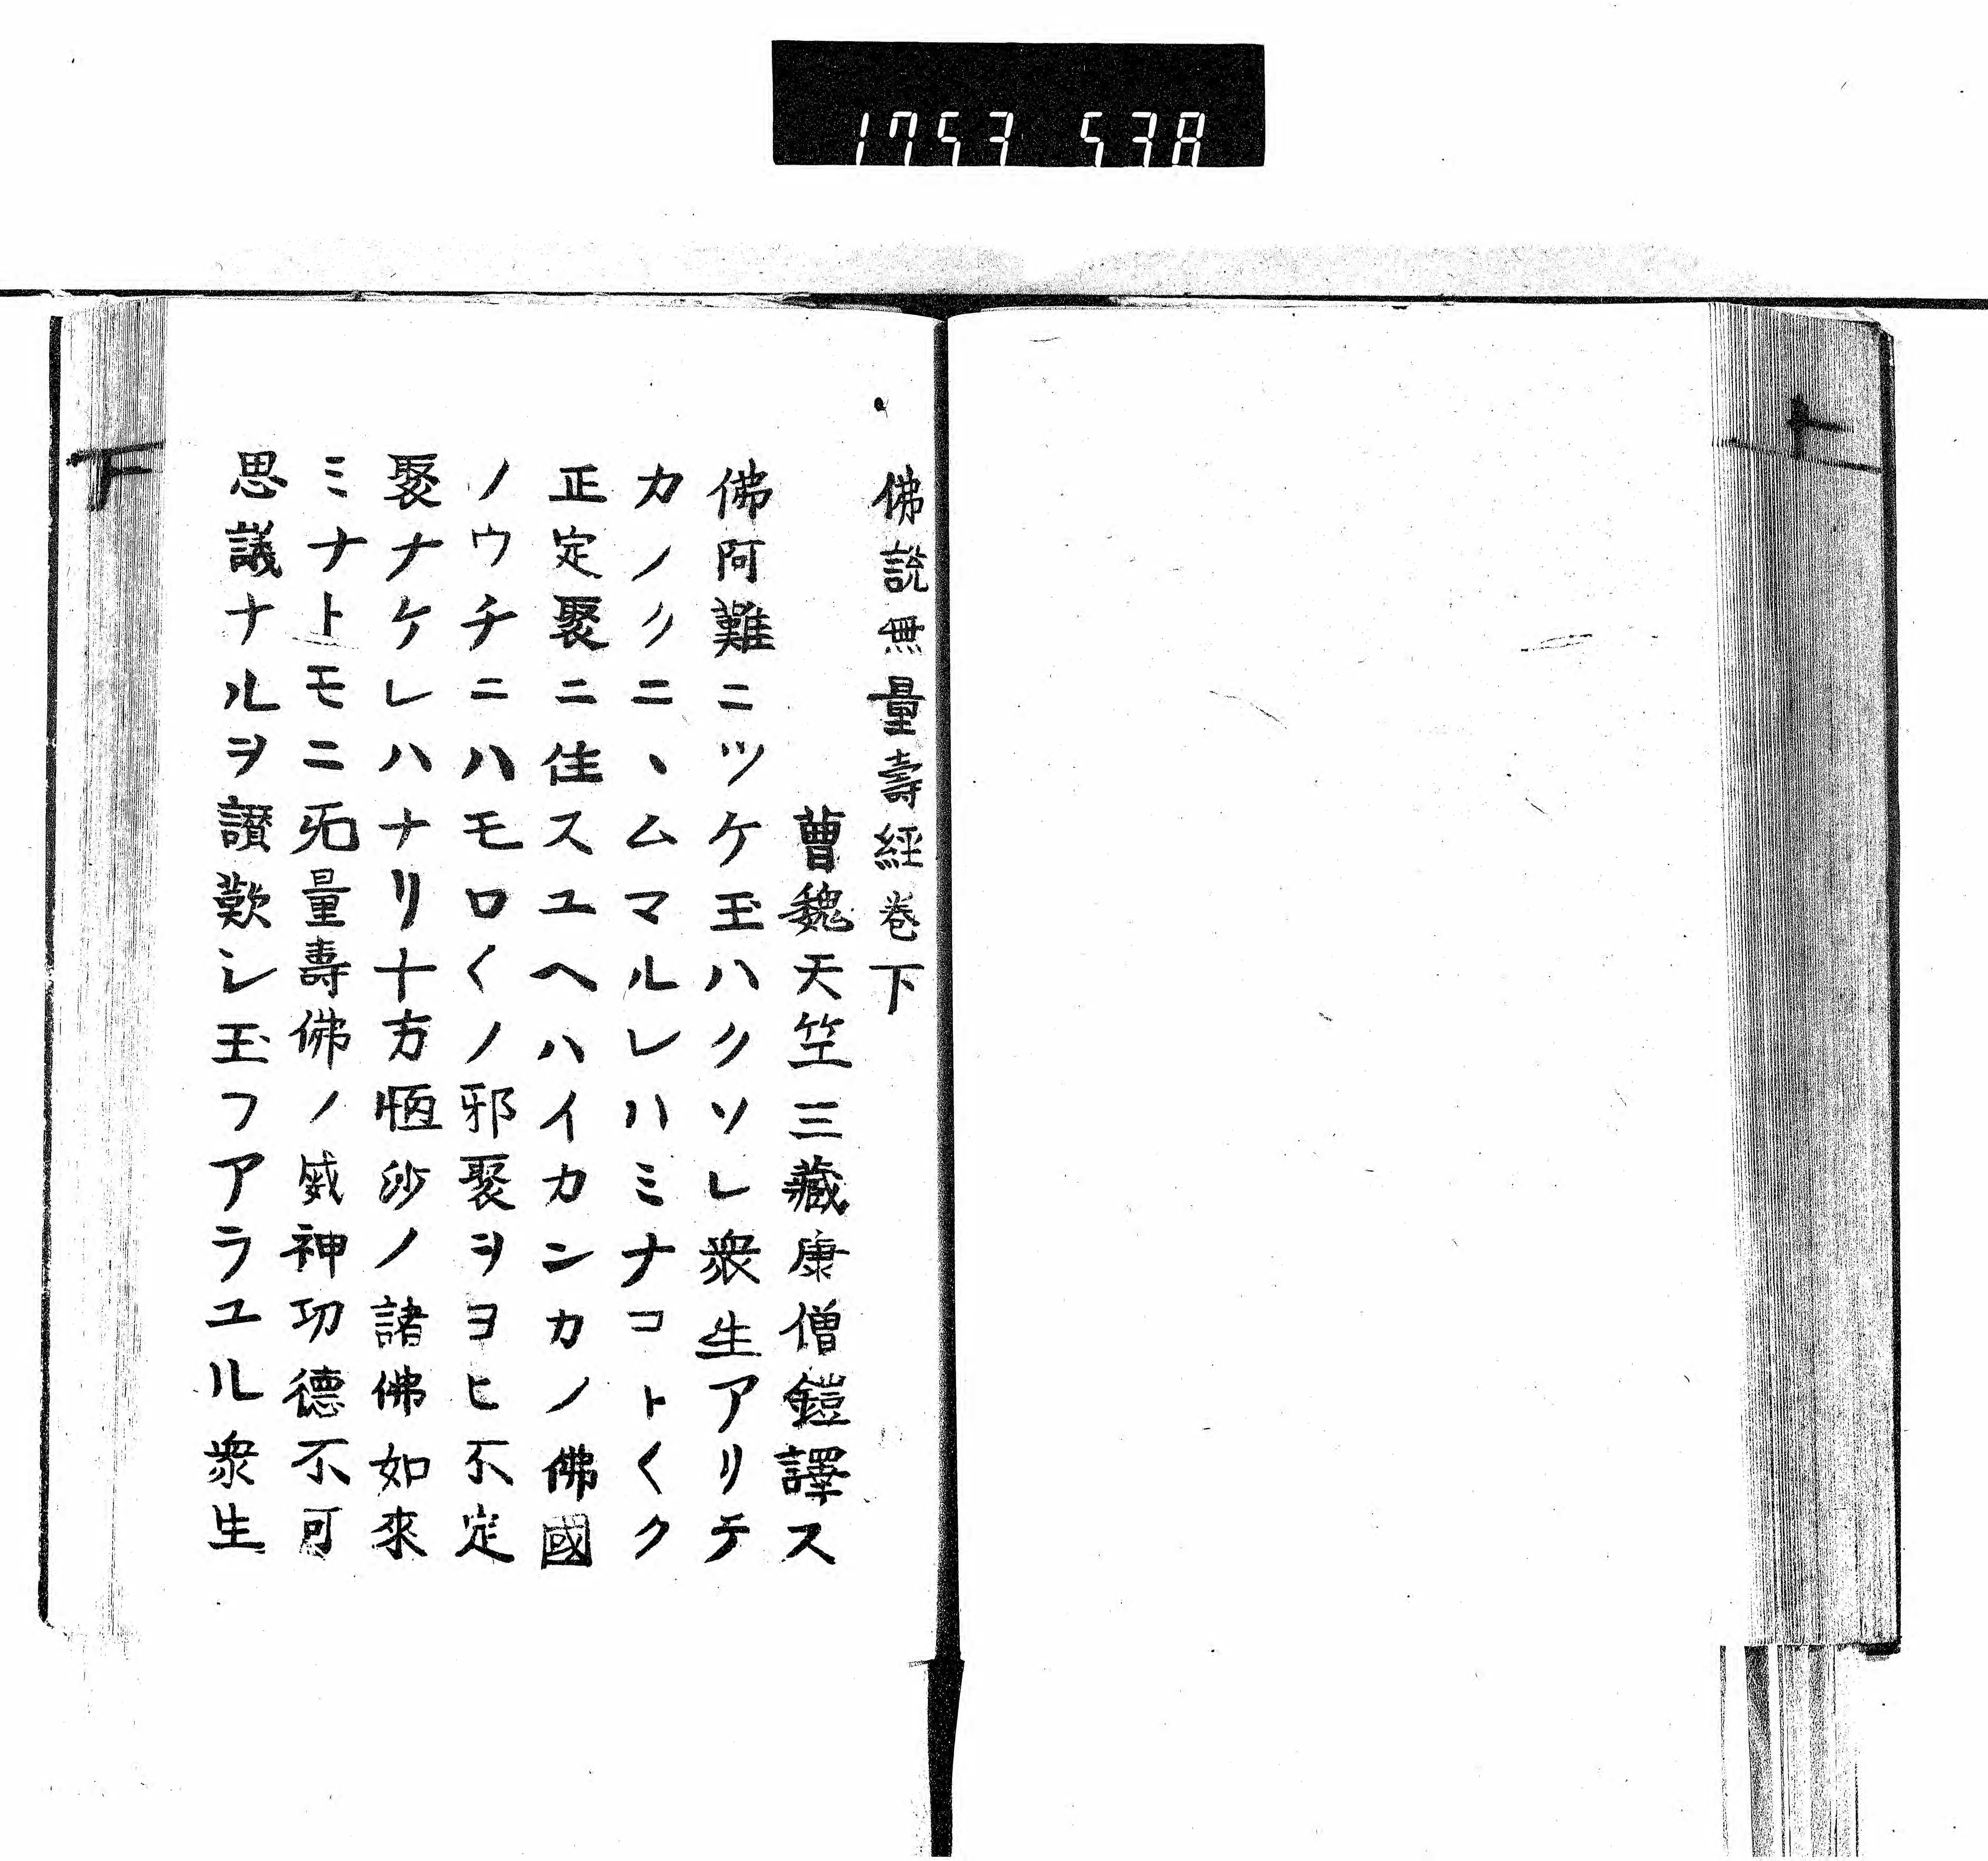 1753 538
佛說無量壽經卷下
曹魏天竺三藏康僧鎧譯ス
佛阿難ニツケ玉ハクソレ衆生アリテ
カノクニヽムマルレハミナコト〱ク
正定聚ニ住スユヘハイカンカノ佛國
ノウチニハモロ〱ノ邪聚ヲヨヒ不定
聚ナケレハナリ十方恒沙ノ諸佛如來
ミナトモニ无量壽佛ノ威神功德不可
思議ナルヲ讚歎シ玉フアラユル衆生
下